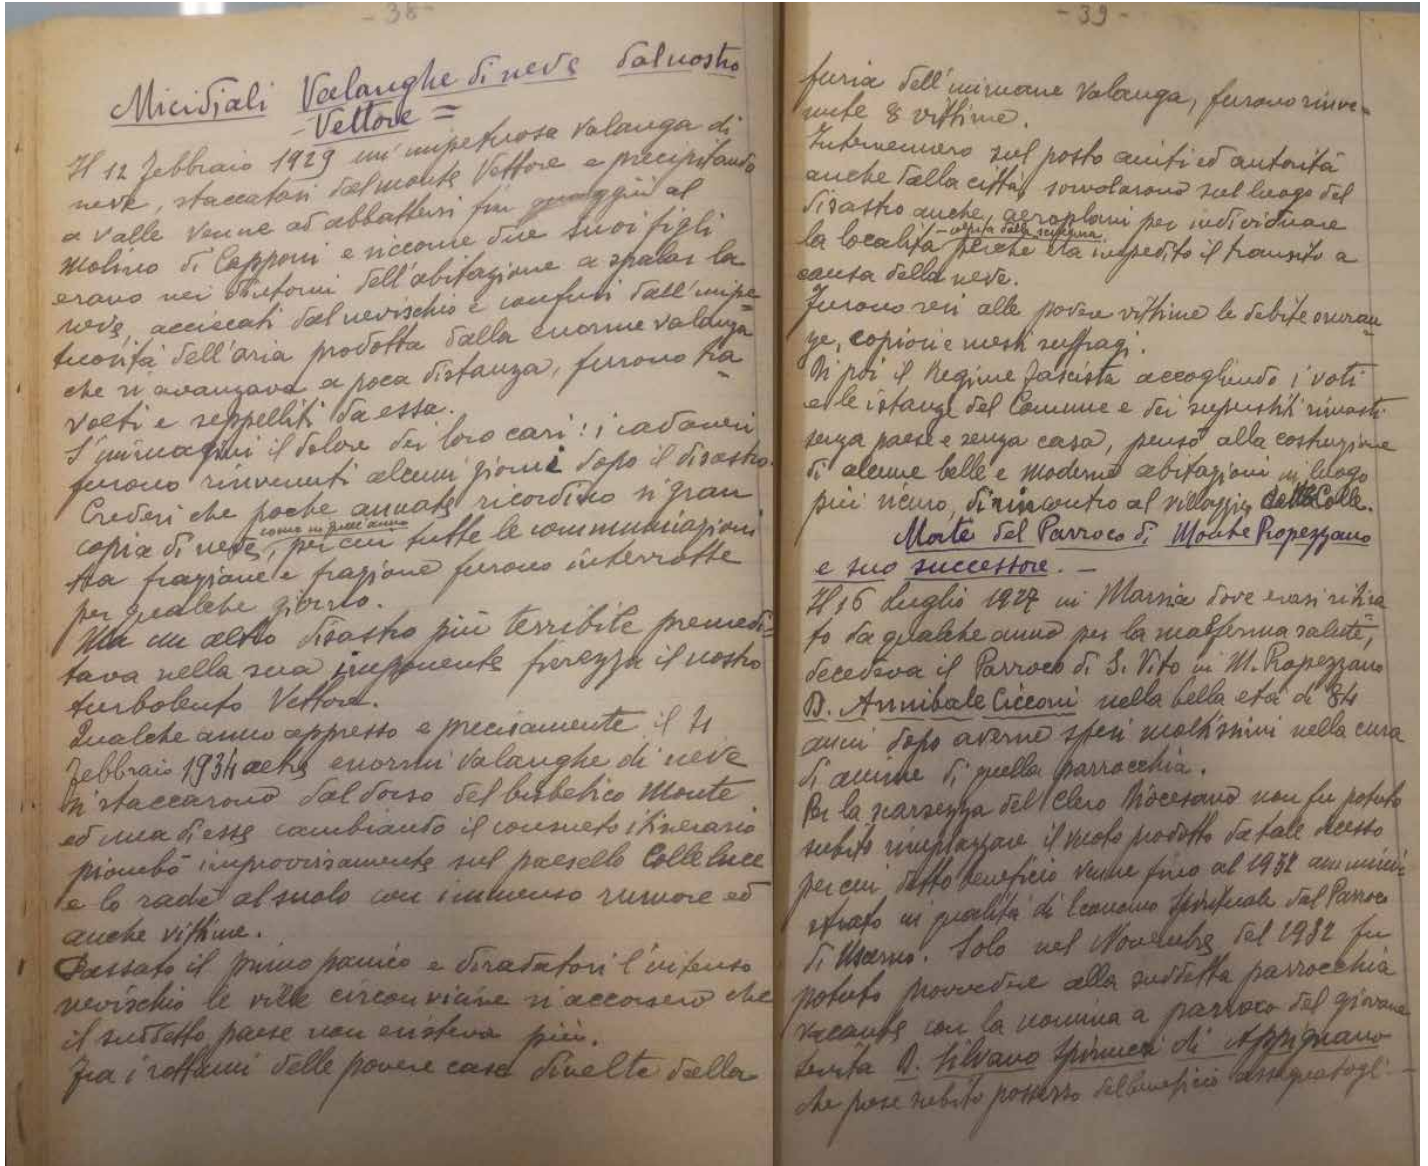 - 38 -
Micidiali Valanghe di neve dal nostro
- Vettore =
Il 12 Febbraio 1929 un'impetuosa valanga di
neve, staccatasi dal monte Vettore e precipitando
a valle venne ad abbattersi fin quaggiù al
molino di Capponi e siccome due suoi figli
erano nei dintorni dell'abitazione a spalar la
neve, acciecati dal nevischio e confusi dall'impe=
tuosità dell'aria prodotta dalla enorme valanga
che si avanzava a poca distanza, furono tra=
volti e seppelliti da essa.
S'immagini il dolore dei loro cari: i cadaveri
furono rinvenuti alcuni giorni dopo il disastro.
Credesi che poche annate ricordino sì gran
copia di neve, come in quell'anno per cui tutte le communicazioni
tra frazione e frazione furono interrotte
per qualche giorno.
Ma un altro disastro più terribile premedi=
tava nella sua imponente fierezza il nostro
turbolento Vettore.
Qualche anno appresso e precisamente il
Febbraio 1934 altre enormi valanghe di neve
si staccarono dal dorso del bisbetico monte
ed una di esse cambiando il consueto itinerario
piombò improvvisamente sul paesello Colleluce
e lo rade al suolo con immenso rumore ed
anche vittime.
Passato il primo panico e diradatosi l'intenso
nevischio le ville circonvicine si accorsero che
il suddetto paese non esisteva più.
Fra i rottami delle povere case divelte dalla
- 39 -
furia dell'immane valanga, furono rinve=
nute 8 vittime.
Intervennero sul posto aiuti ed autorità
anche dalla città, sorvolarono sul luogo del
disastro anche, aeroplani per individuare
la località perché era impedito il transito a
causa della neve.
Furono resi alle povere vittime le debite onoran=
ze, copiosi e mesti suffragi.
Di poi il Regime fascista accogliendo i voti
e le istanze del Comune e dei superstiti rimasti
senza paese e senza casa, pensò alla costruzione
di alcune belle e moderne abitazioni in luogo
più sicuro, di rincontro al villaggio Colle.
Morte del Parroco di Monte Propezzano
e suo successore. -
Il 16 Luglio 1927 in Marsia dove erasi ritira=
to da qualche anno per la malferma salute,
decedeva il Parroco di S. Vito in M. Propezzano
D. Annibale Cicconi nella bella età di 84
anni dopo averne spesi moltissimi nella cura
di anime di quella parrocchia.
Per la scarsezza del Clero Diocesano non fu potuto
subito rimpiazzare il vuoto prodotto da tale decesso
per cui detto beneficio venne fino al 1932 ammini=
strato in qualità di Economo Spirituale dal Parroco
di Uscerno. Solo nel Novembre del 1932 fu
potuto provvedere alla suddetta parrocchia
vacante con la nomina a parroco del giovane
levita D. Silvano Spinucci di Appignano
che prese subito possesso del beneficio assegnatogli. -